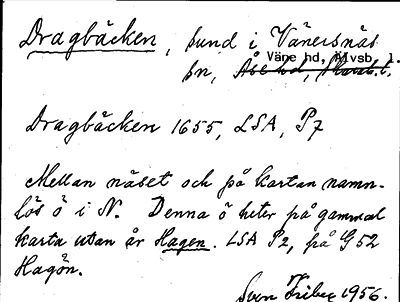 Dragbäcken, sund i Vänersnäs
Väne hd, Älvsb. l.
sn, Åse hd, Skarab. l.
Dragbäcken 1655, LSA, P7
Mellan näset och på kartan namn-
lös ö i N. Denna ö heter på gammal
karta utan år Hagen. LSA P2, på G52
Hagön.
Sven Friber 1956.